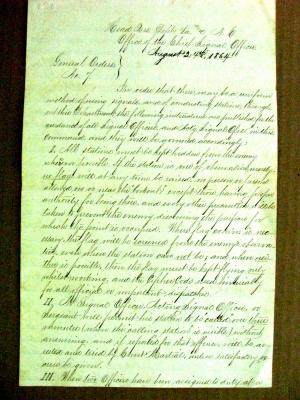 Head Qrs Dept Va & N.C.
Office of the Chief Signal Officer
August 24th 1864
General Orders
No. 7
In order that there may be a uniform
method of using signals, and of conducting stations through
out this Department, the following instructions are published for the
guidance of all Signal Officers, and Actg Signal Offs. in this
command, and they will be governed accordingly:
I. All stations must be kept hidden from the enemy
when possible. If the station is one of observation merely
no flag will at any time be raised, no person be
allowed on or near the lookouts except those having proper
authority for being there, and every other precaution is to be
taken to prevent the enemy discovering the purpose for
which the point is occupied. Where flag or
the flag will be screened from the enemy's observa
tion, even when the station can not be, and when neither
this is possible, then the flag must be kept flying only
whilst working, and the Cipher Code used invariably
for all official or important messages.
II. A Signal Officer, Acting Signal Officer, or
Sergeant will permit his station to be called one three
minutes (when the calling station is visible) without
answering, and if reported for that offence will be ar
rested and tried by Court Martial, unless satisfactory rea
sons be given.
III. When two Officers have been assigned to duty at a